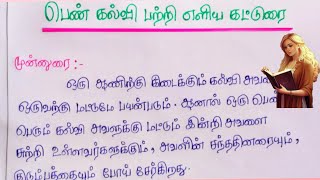 பெண் கல்வி பற்றி எளிய கட்டுரை
முன்னுரை :-
ஒரு ஆணிற்கு கிடைக்கும் கல்வி அவன்
ஒருவனுக்கு மட்டுமே பயன்படும். ஆனால் ஒரு பெண்
பெறும் கல்வி அவளுக்கு மட்டும் இன்றி அவளை
சுற்றி உள்ளவர்களுக்கும், அவளின் சந்ததியினரையும்,
குடும்பத்தையும் போய் சேர்கிறது.